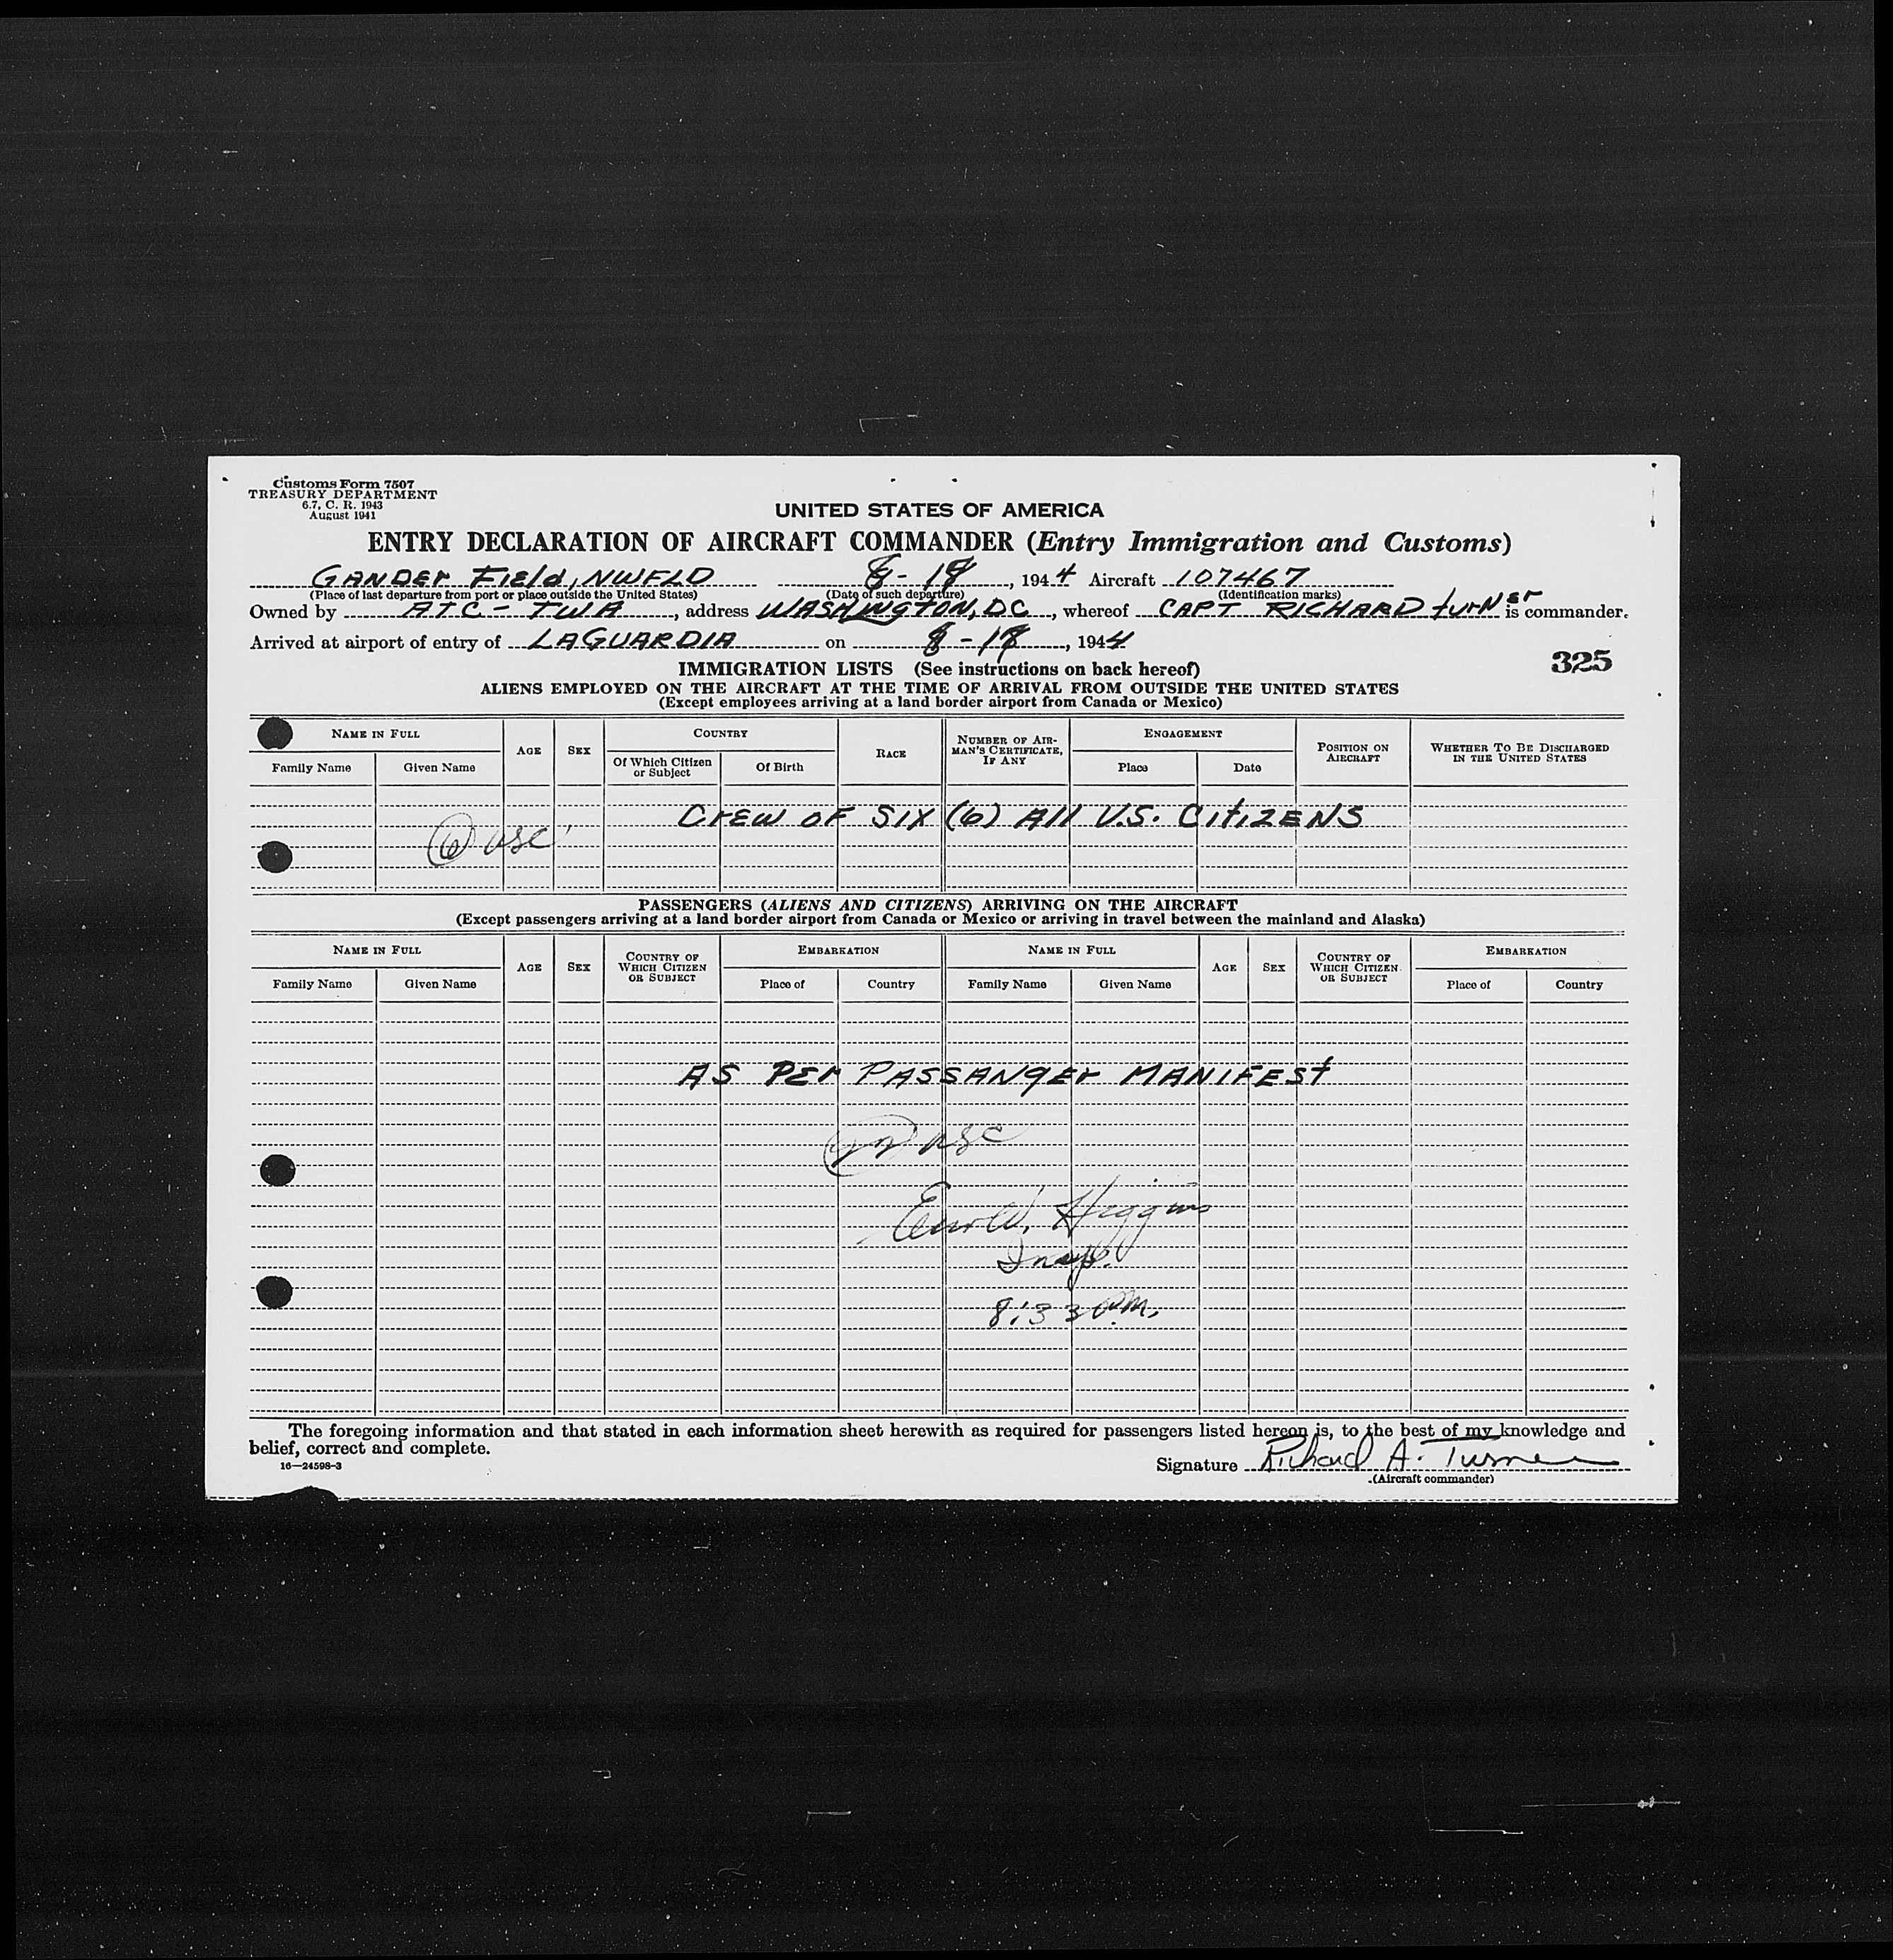 Customs Form 7507
TREASURY DEPARTMENT
6.7, C. R. 1943
August 1941
UNITED STATES OF AMERICA
ENTRY DECLARATION OF AIRCRAFT COMMANDER (Entry Immigration and Customs)
GANDEr FIEld, NWFLD 8-18, 1944 Aircraft 107467
(Place of last departure from port or place outside the United States) (Date of such departure) (Identification marks)
Owned by ATC - TWA, address WASHINGTON, DC, whereof CAPT RICHARD turNer is commander.
Arrived at airport of entry of LAGUARDIA on 8-18, 1944
325
IMMIGRATION LISTS (See instructions on back hereof)
ALIENS EMPLOYED ON THE AIRCRAFT AT THE TIME OF ARRIVAL FROM OUTSIDE THE UNITED STATES
(Except employees arriving at a land border airport from Canada or Mexico)
NAME IN FULL AGE SEX COUNTRY RACE NUMBER OF AIRMAN'S CERTIFICATE, IF ANY ENGAGEMENT POSITION ON AIRCRAFT WHETHER TO BE DISCHARGED IN THE UNITED STATES
Family Name Given Name Of Which Citizen or Subject Of Birth Place Date
CrEW OF SIX (6) All U.S. CitIZENS
6 USC
PASSENGERS (ALIENS AND CITIZENS) ARRIVING ON THE AIRCRAFT
(Except passengers arriving at a land border airport from Canada or Mexico or arriving in travel between the mainland and Alaska)
NAME IN FULL AGE SEX COUNTRY OF WHICH CITIZEN OR SUBJECT EMBARKATION NAME IN FULL AGE SEX COUNTRY OF WHICH CITIZEN OR SUBJECT EMBARKATION
Family Name Given Name Place of Country Family Name Given Name Place of Country
AS PEr PASSANgEr MANIFESt
USC
Higgins
Insp.
8:33 P.M.
The foregoing information and that stated in each information sheet herewith as required for passengers listed hereon is, to the best of my knowledge and
belief, correct and complete.
16—24598-3
Signature Richard A. Turner
(Aircraft commander)